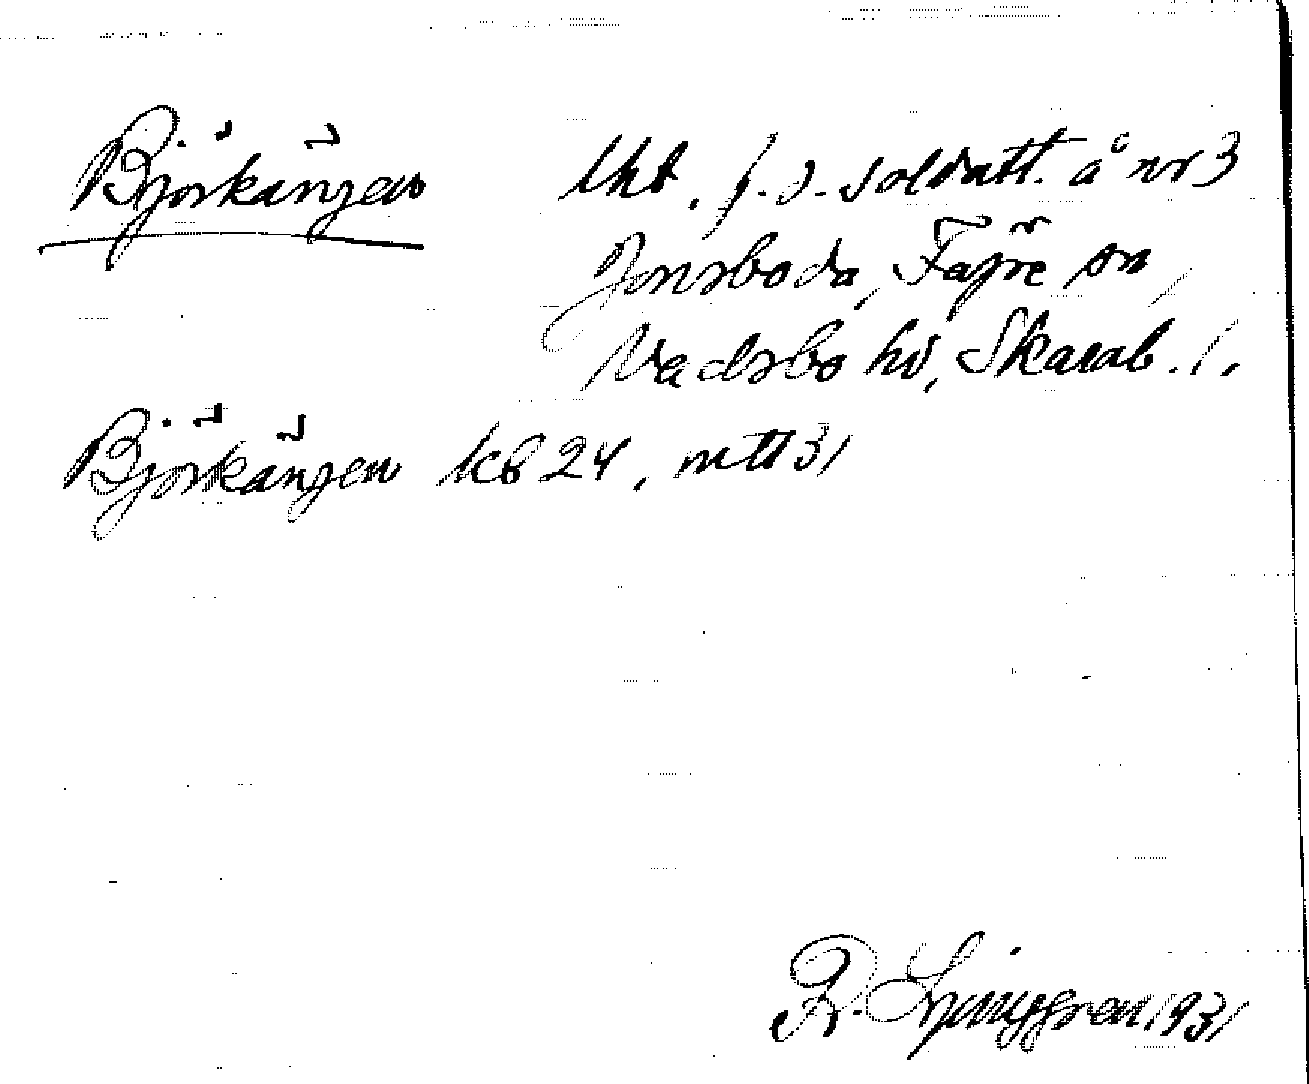 Björkängen lht. f.d. soldatt. å nr 3
Jonsboda, Fägre sn,
Vadsbo hd, Skarab. l.
Björkängen kb 24, mtt 31
R. Ljunggren 1931